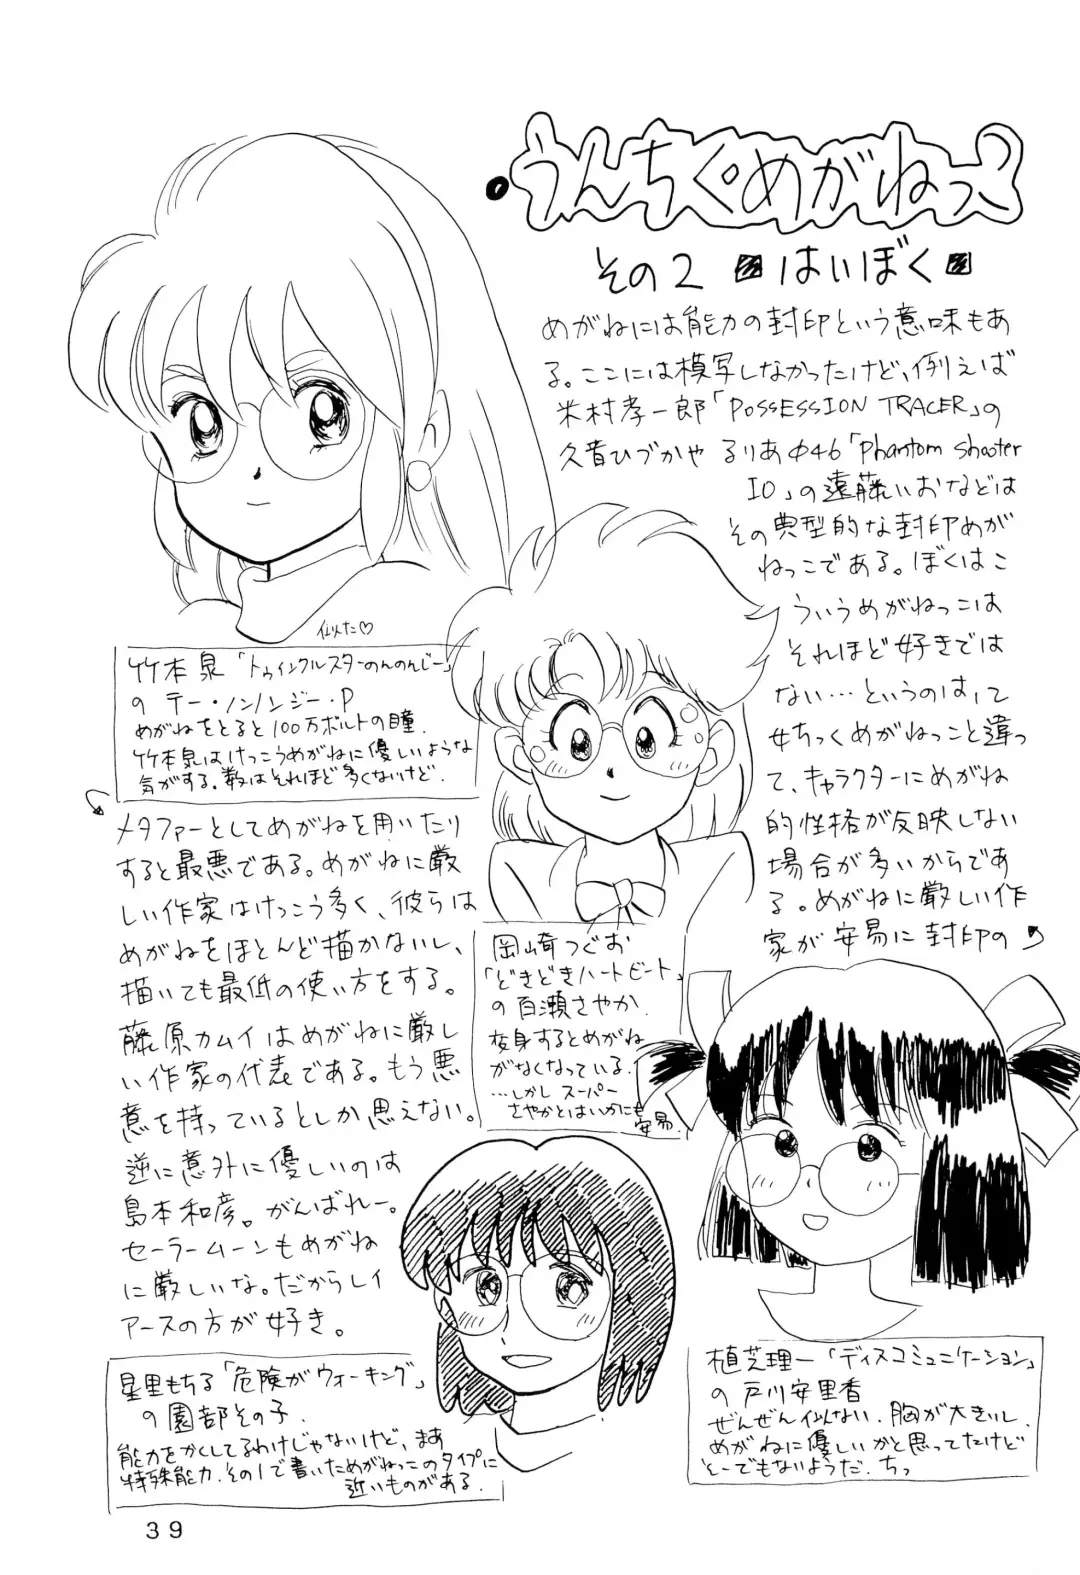 うんちく・めがねっこ
その2 はいぼく
めがねには能力の封印という意味もあ
る。ここには模写しなかったけど、例えば
米村孝一郎「POSSESSION TRACER」の
久音ひづかや るりあΦ46「Phantom shooter
IO」の遠藤いおなどは
その典型的な封印めが
ねっこである。ぼくはこ
ういうめがねっこは
それほど好きでは
ない…というのは、て
女ちっくめがねっこと違っ
て、キャラクターにめがね
的性格が反映しない
場合が多いからであ
る。めがねに厳しい作
家が安易に封印の
メタファーとしてめがねを用いたり
すると最悪である。めがねに厳
しい作家はけっこう多く、彼らは
めがねをほとんど描かないし、
描いても最低の使い方をする。
藤原カムイはめがねに厳し
い作家の代表である。もう悪
意を持っているとしか思えない。
逆に意外に優しいのは
島本和彦。がんばれー。
セーラームーンもめがね
に厳しいな。だからレイ
アースの方が好き。
似た♡
竹本泉「トゥインクルスターのんのんじー」
の テー・ノンノンジー・P
めがねをとると100万ボルトの瞳.
竹本泉はけっこうめがねに優しいような
気がする。数はそれほど多くないけど.
岡崎つぐお
「どきどきハートビート」
の百瀬さやか.
変身するとめがね
がなくなっている.
…しかし スーパー
さやかとはいかにも
安易.
星里もちる「危険がウォーキング」
の園部その子.
能力をかくしてるわけじゃないけど、まあ
特殊能力.その1で書いためがねっこのタイプに
近いものがある.
植芝理一「ディスコミュニケーション」
の戸川安里香
ぜんぜん似ない.胸が大きいし.
めがねに優しいかと思ってたけど
そーでもないようだ.ちっ
39